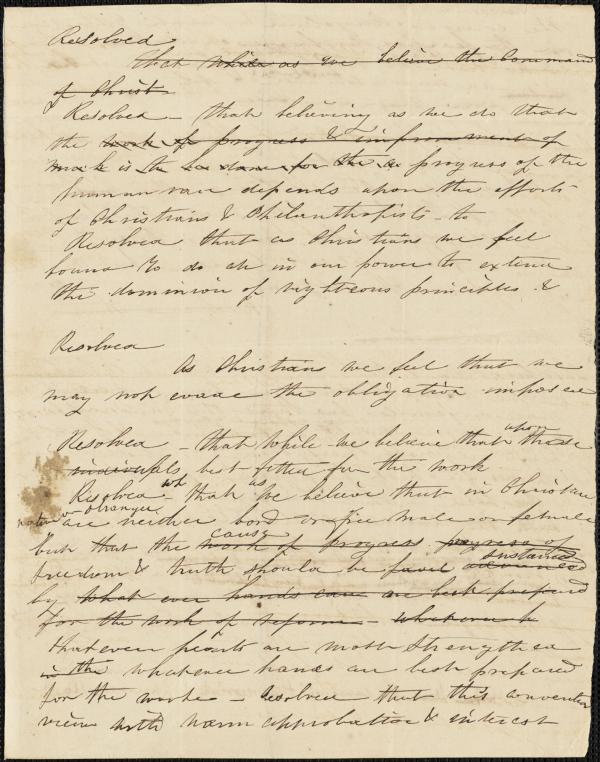 Resolved
that while as we believe the command
of Christ
Resolved - that believing as we do that
the work of progress & improvement of
is to be done for the progress of the
human race depends upon the efforts
of Christians & Philanthropists - to
Resolved that as Christians we feel
bound to do all in our power to extend
the dominion of righteous principles &
Resolved
As Christians we feel that we
may not evade the obligation imposed
Resolved - that while we believe that upon those
individuals best fitted for the work
Resolved - that as we believe that in Christ are
native or stranger
neither bond or free male or female
but that the work of progress cause progress of
freedom & truth should be advanced sustained
by what ever hands are best prepared
for the work of reform - whatever h
that ever hearts are most strengthed
in the whatever hands are best prepared
for the work - Resolved that this convention
view with warm approbation & interest